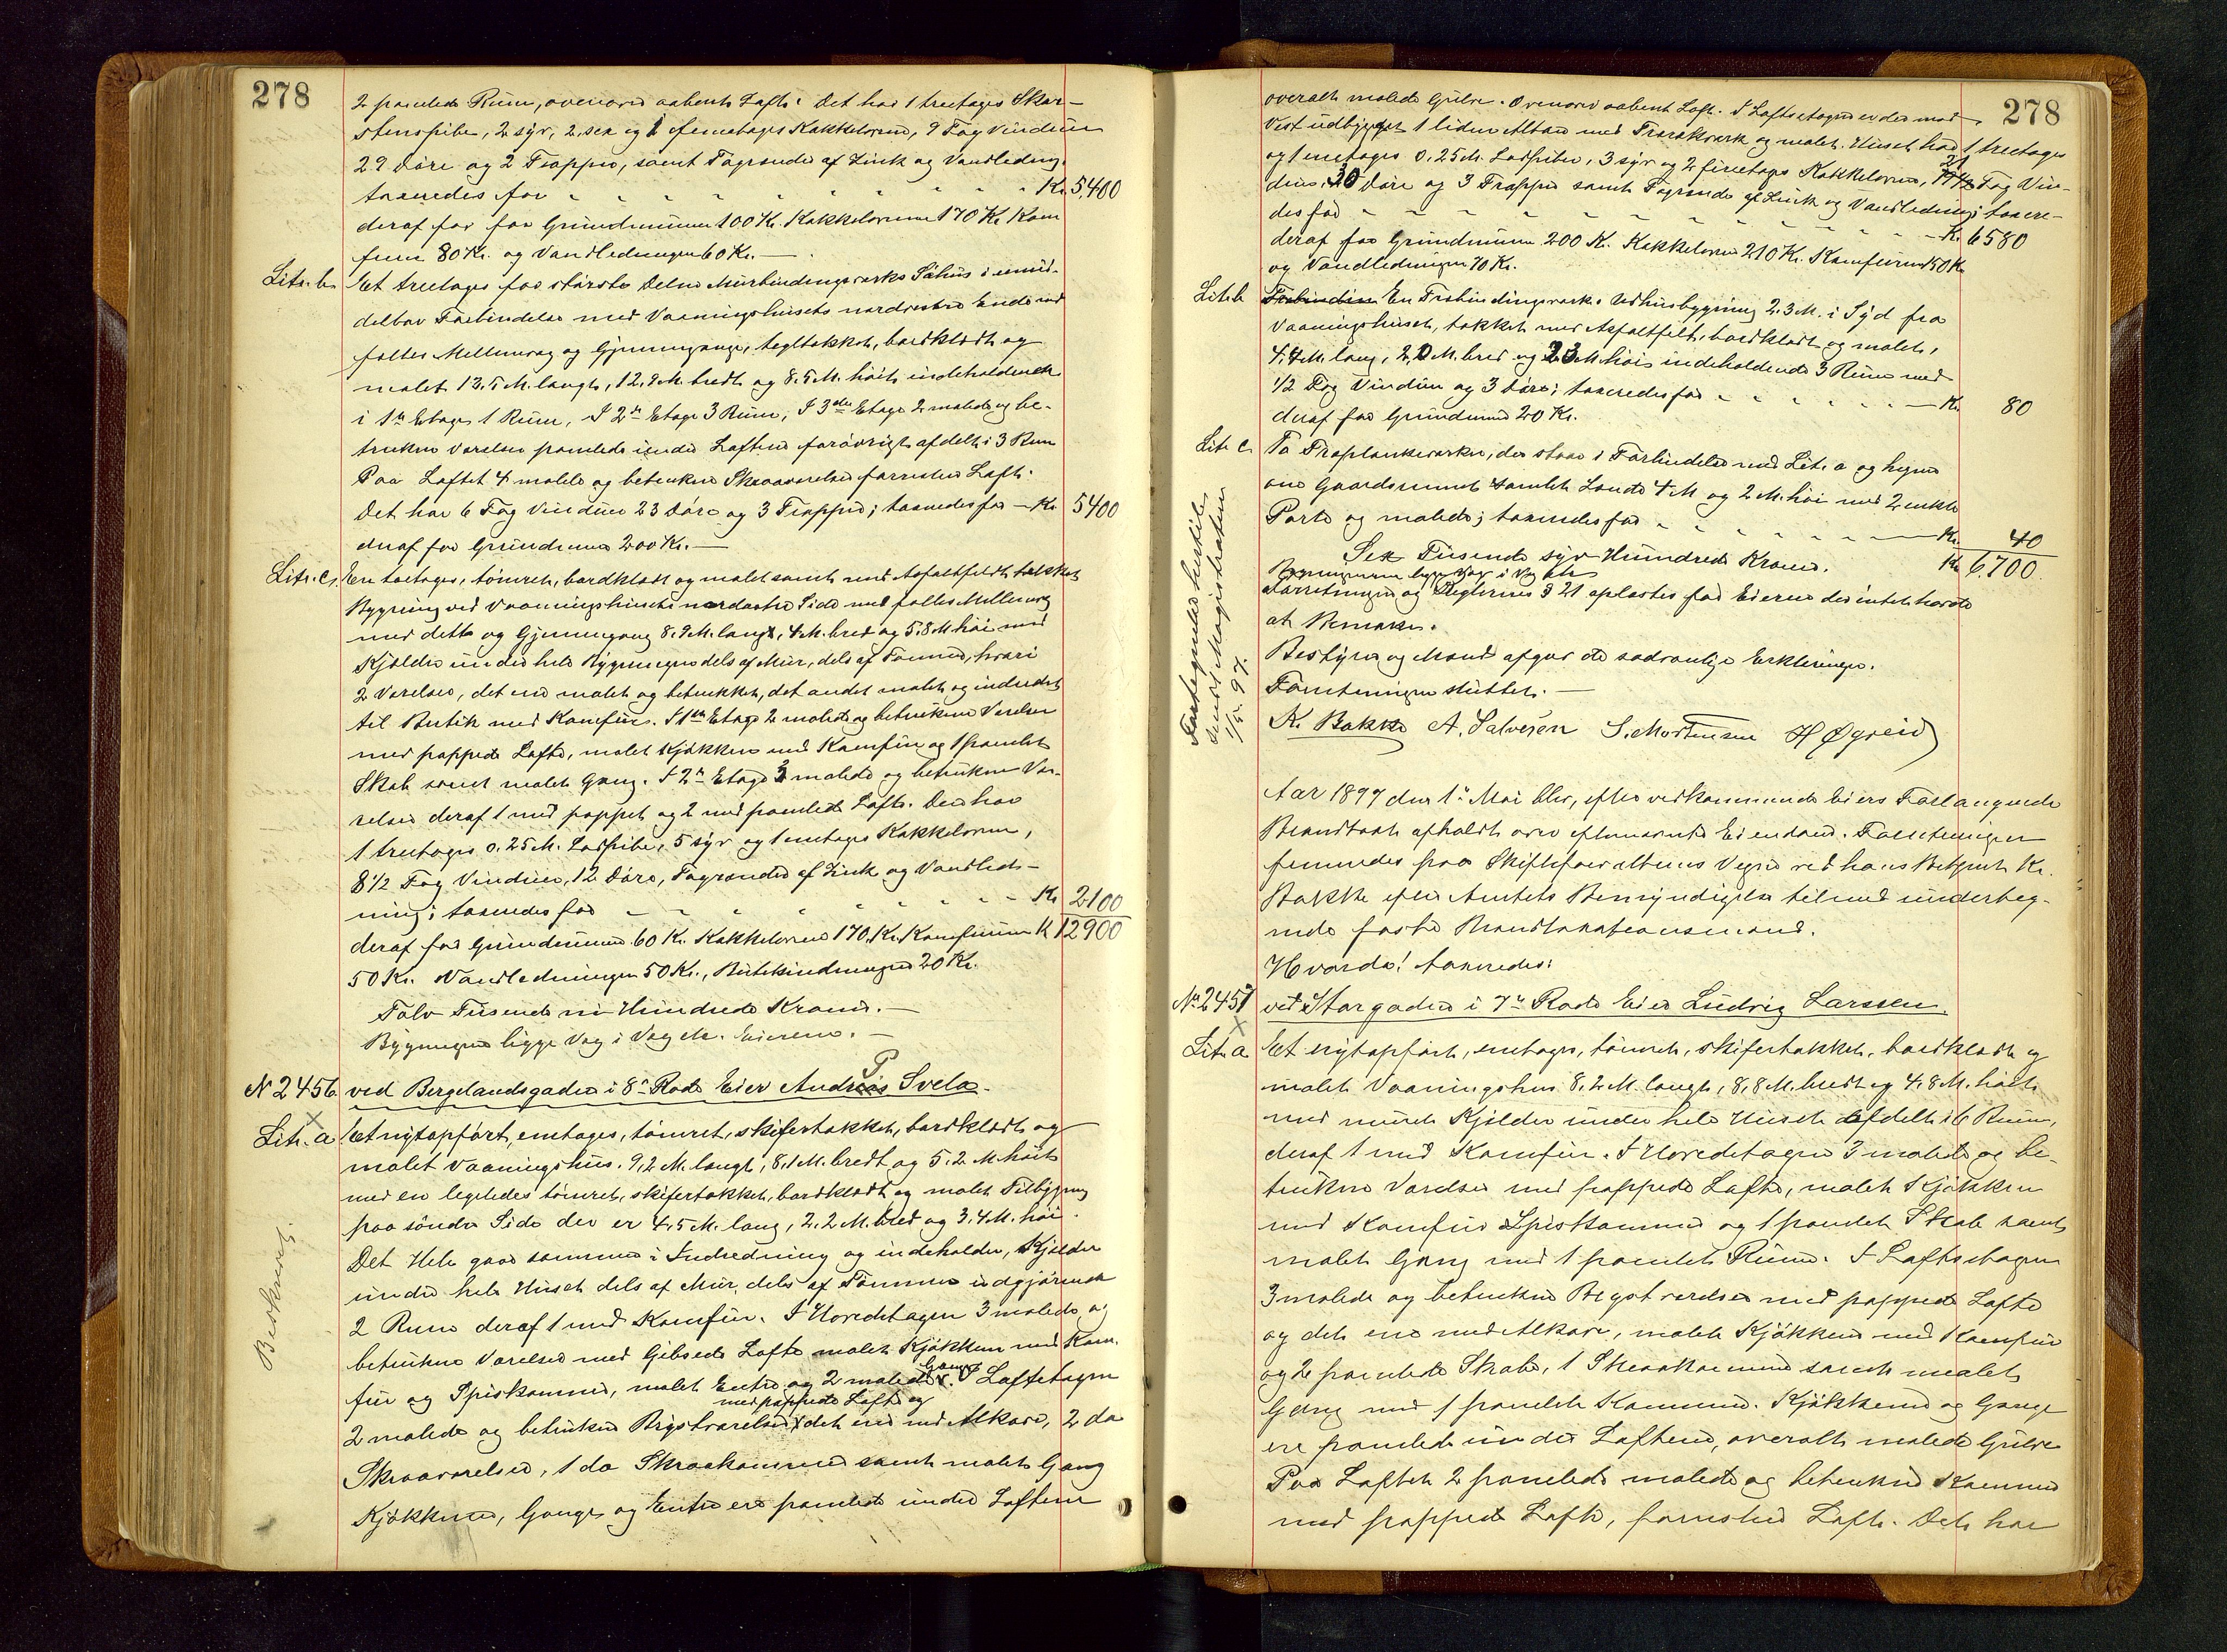 278
2 panelede Rum, ovenover aabent Loft. Det har 1 treetages Skor-
stenspibe, 2 syv, 2 sex og 1 femetages Kakkelovne, 9 Fag Vinduer
29 Döre og 2 Trapper, samt Tagrender af Zink og Vandledning
taxeredes for - - - - - Kr. 5400
deraf for for Grundmuren 100 Kr. Kakkelovnene 170 Kr. Kom
furer 80 Kr. og Vandledningen 60 Kr. —
Litr. b. Et treetages for störste Delen Murbindingsverks Söhus i umid-
delbar Forbindelse med Vaaningshusets nordvestre Ende med
fælles Mellemvæg og Gjennemgange, tegltækket, bordklædt og
malet 13.5 M. langt, 12.9 M. bredt og 8.5 M. höit indeholdende
i 1ste Etage 1 Rum, I 2den Etage 3 Rum, I 3die Etage 2 malede og be-
trukne Værelser panelede under Loftene forövrigt afdelt i 3 Rum
Paa Loftet 4 malede og betrukne Skraaværelser forresten Loft.
Det har 6 Fag Vinduer 23 Döre og 3 Trapper; taxeredes for — Kr. 5400
deraf for Grundmuren 200 Kr. —
Litr. c. En toetages, tömret, bordklædt og malet samt med Asfaltfeldt tækket
Bygning ved Vaaningshusets nordöstre Side med fælles Mellemvæg
med dette og Gjennemgang 8.9 M. langt, 4 M. bred og 5.8 M höi med
Kjælder under hele Bygningen dels af Mur, dels af Tömmer, hvori
2 Værelser, det ene malet og betrukket, det andet malet og indredet
til Butik med Komfur. I 1ste Etage 2 malede og betrukne Værelser
med pappede Lofte, malet Kjökken med Komfur og 1 panelet
Skab samt malet Gang. I 2den Etage 3 malede og betrukne Væ-
relser deraf 1 med pappet og 2 med panelede Lofte. Den har
1 treetages 0.25 M. Ladpibe, 5 syv og 1 emetages Kakkelovne,
8 1/2 Fag Vinduer, 12 Döre, Tagrender af Zink og Vandled-
ning; taxeredes for - - - - - Kr. 2100
deraf for Grundmuren 60 Kr. Kakkelovnene 170 Kr. Komfurene K 12900
50 Kr. Vandledningen 50 Kr., Butikindredningen 20 Kr.
Tolv Tusende ni Hundrede Kroner. —
Bygningene ligge Væg i Væg etc. Eierne. —
N 2456 ved Bergelandsgaden i 8de Rode Eier Andreas P. Svela.
Litr. a Et nytopfört, enetages, tömret, skifertækket, bordklædt og
malet Vaaningshus. 9,2 M. langt, 8,1 M. bredt og 5.2 M höit
med en ligeledes tömret, skifertækket, bordklædt og malet Tilbygning
paa söndre Side der er 4,5 M. lang, 2.2 M. bred og 3,4 M. höi.
Det Hele gaar sammen i Indredning og indeholder, Kjælder
under hele Huset dels af Mur, dels af Tömmer udgjörende
2 Rum deraf 1 med Komfur. I Hovedetagen 3 malede og
betrukne Værelser med Gibsede Lofte malet Kjökken med Kom-
fur og Spiskammer, malet Entre og 2 malede Gange. I Loftetagen
2 malede og betrukne Kvistværelser med pappede Lofte og det ene med Alkove, 2 do
Skraaværelser, 1 do Skraakammer samt malet Gang
Kjökkenet, Gange og Entre ere panelede under Loftene
Beskrevet.
278
overalt malede Gulve. Ovenover aabent Loft. I Loftsetagen er der mod
Vest udbygget 1 liden Altan med Træverk og malet. Huset har 1 treetages
og 1 enetages 0.25 M. Ladpiber, 3 syv og 2 fireetages Kakkelovne, Fag Vin-
duer, 30 Döre og 3 Trapper samt Tagrender af Zink og Vandledning; taxere-
des for - - - - - Kr. 6580
deraf for Grundmuren 200 Kr. Kakkelovne 210 Kr. Komfurene 150 Kr
og Vandledningen 70 Kr.
Litr. b En Træbindingsverks Udhusbygning 2.3 M. i Syd fra
Vaaningshuset, tækket med Asfaltfelt, bordklædt og malet,
4.4 M. lang, 2,0 M. bred og 2.3 M. höi indeholdende 3 Rum med
1/2 Fag Vinduer og 3 Döre; taxeredes for - - - Kr. 80
deraf for Grundmuren 20 Kr.
Litr. c. To Træplankeværker, der staar i Forbindelse med Litr. a og hegne
om Gaardsrummet samlet Længde 4 M og 2 M. höi med 2 enkle
Porte og malede; taxeredes for - - - — Kr. 40
Sex Tusende syv Hundrede Kroner. Kr. 6700.
Bygningerne ligge Væg i Væg etc
Forretningen og Reglernes § 21 oplæstes for Eieren der intet havde
at Bemærke.
Bestyrer og Mænd afgav de sædvanlige Erklæringer.
Forretningen sluttet. —
K. Bakke A. Salvesen S. Mortensen H Øgreid
Fortegnelse hertil
sendt Magistraten
1/5. 97.
Aar 1897 den 1ste Mai blev, efter vedkommende Eiers Forlangende
Brandtaxt afholdt over eftermævnte Eiendom. Forretningen
fremmedes paa Skifteforvalterens Vegne ved hans Betjent Kr.
Bakke efter Amtets Bemyndigelse tilmed underteg-
nede faste Brandtaxationsmænd.
Hvorda! taxeredes:
No 2457 ved Storgaden i 7de Rode Eier Ludvig Larssen.
Litr. a Et nytopfört, enetages, tömret, skifertækket, bordklædt og
malet Vaaningshus 8,2 M. langt, 8,8 M. bredt og 4,8 M. höit
med muret Kjælder under hele Huset afdelt i 6 Rum,
deraf 1 med Komfur. I Hovedetagen 3 malede og be-
trukne Værelser med pappede Lofte, malet Kjökken
med Komfur Spiskammer og 1 panelet Skab samt
malet Gang med 1 panelet Rum. I Loftsetagen
3 malede og betrukne Kvistværelser med pappede Lofte
og det ene med Alkove, malet Kjökken med Komfur
og 2 panelede Skabe, 1 Skraakammer samt malet
Gang med 1 panelet Kammer. Kjökkene og Gange
ere panelede under Loftene, overalt malede Gulve
Paa Loftet 2 panelede malede og betrukne Kammer
med pappede Lofte, forresten Loft. Det har